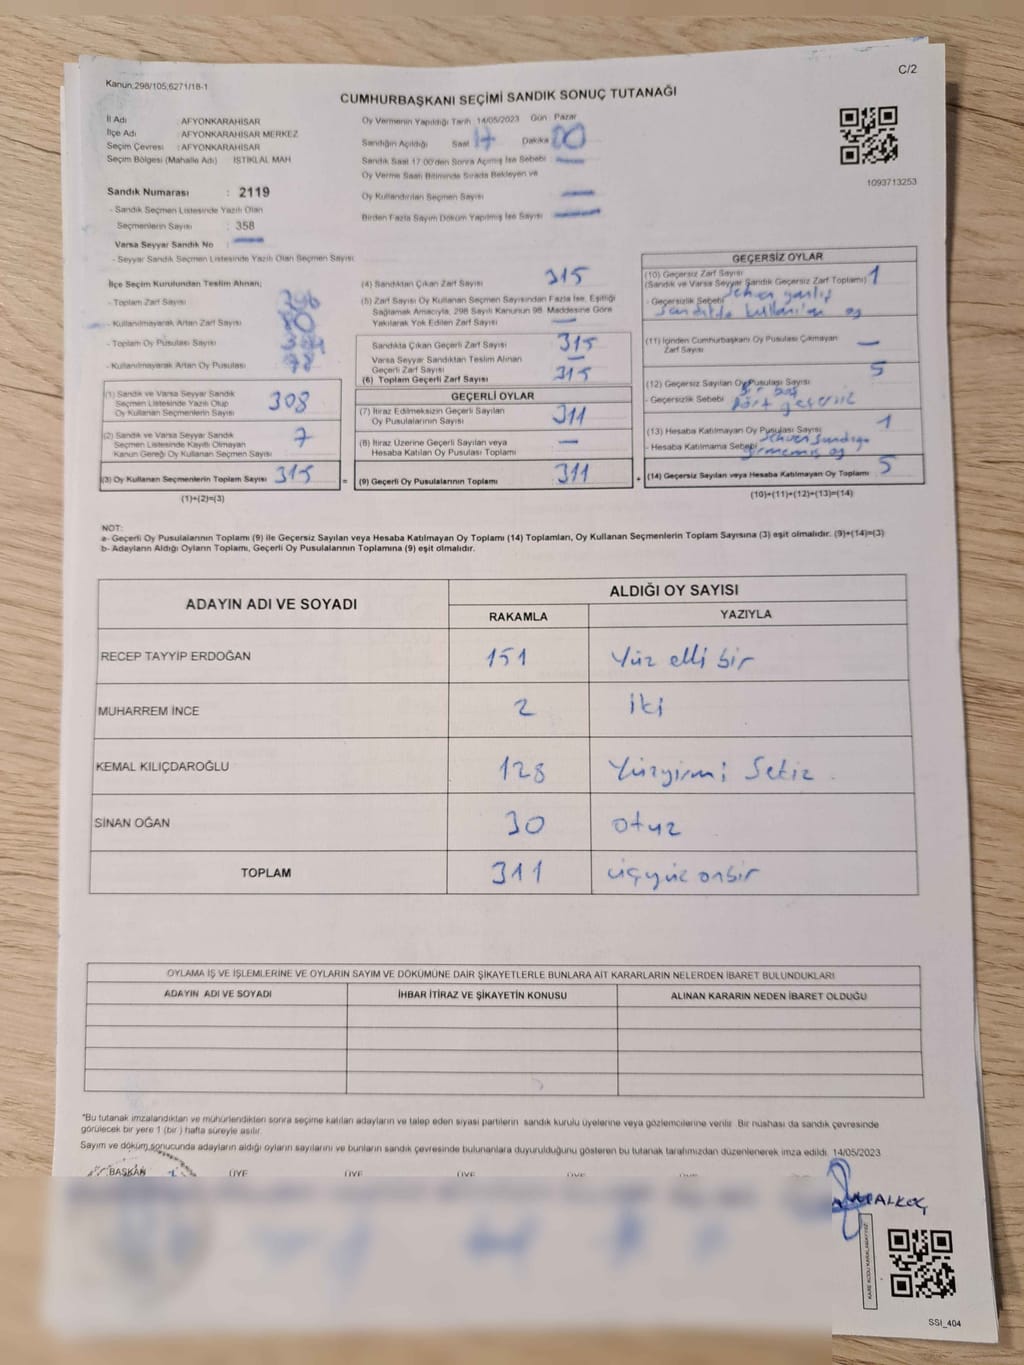 C/2
Kanun;298/105;6271/18-1
CUMHURBAŞKANI SEÇİMİ SANDIK SONUÇ TUTANAĞI
İl Adı : AFYONKARAHİSAR
İlçe Adı : AFYONKARAHİSAR MERKEZ
Seçim Çevresi : AFYONKARAHİSAR
Seçim Bölgesi (Mahalle Adı) İSTİKLAL MAH
Sandık Numarası : 2119
- Sandık Seçmen Listesinde Yazılı Olan
Seçmenlerin Sayısı : 358
Varsa Seyyar Sandık No :
- Seyyar Sandık Listesinde Yazılı Olan Seçmen Sayısı
Oy Vermenin Yapıldığı Tarih 14/05/2023 Gün Pazar
Sandığın Açıldığı Saat 17 Dakika 00
Sandık Saat 17:00'den Sonra Açılmış İse Sebebi
Oy Verme Saati Bitiminde Sırada Bekleyen ve
Oy Kullandırılan Seçmen Sayısı
Birden Fazla Sayım Döküm Yapılmış İse Sayısı
1093713253
İlçe Seçim Kurulundan Teslim Alınan;
- Toplam Zarf Sayısı
- Kullanılmayarak Artan Zarf Sayısı
- Toplam Oy Pusulası Sayısı
- Kullanılmayarak Artan Oy Pusulası 78
(1) Sandık ve Varsa Seyyar Sandık
Seçmen Listesinde Yazılı Olup
Oy Kullanan Seçmenlerin Sayısı 308
(2) Sandık ve Varsa Seyyar Sandık
Seçmen Listesinde Kayıtlı Olmayan
Kanun Gereği Oy Kullanan Seçmen Sayısı 7
(3) Oy Kullanan Seçmenlerin Toplam Sayısı 315 =
(1)+(2)=(3)
(4) Sandıktan Çıkan Zarf Sayısı 315
(5) Zarf Sayısı Oy Kullanan Seçmen Sayısından Fazla İse, Eşitliği
Sağlamak Amacıyla, 298 Sayılı Kanunun 98. Maddesine Göre
Yakılarak Yok Edilen Zarf Sayısı —
Sandıkta Çıkan Geçerli Zarf Sayısı 315
Varsa Seyyar Sandıktan Teslim Alınan
Geçerli Zarf Sayısı —
(6) Toplam Geçerli Zarf Sayısı 315
GEÇERLİ OYLAR
(7) İtiraz Edilmeksizin Geçerli Sayılan
Oy Pusulasının Sayısı 311
(8) İtiraz Üzerine Geçerli Sayılan veya
Hesaba Katılan Oy Pusulası Toplamı —
(9) Geçerli Oy Pusulalarının Toplamı 311 +
GEÇERSİZ OYLAR
(10) Geçersiz Zarf Sayısı
(Sandık ve Varsa Seyyar Sandık Geçersiz Zarf Toplamı) 1
- Geçersizlik Sebebi sehven yanlış
sandıkta kullanılan oy
(11) İçinden Cumhurbaşkanı Oy Pusulası Çıkmayan
Zarf Sayısı —
(12) Geçersiz Sayılan Oy Pusulası Sayısı 5
- Geçersizlik Sebebi bir boş
dört geçersiz
(13) Hesaba Katılmayan Oy Pusulası Sayısı 1
- Hesaba Katılmama Sebebi sehven sandığa
girmemiş oy
(14) Geçersiz Sayılan veya Hesaba Katılmayan Oy Toplamı 5
(10)+(11)+(12)+(13)=(14)
NOT:
a- Geçerli Oy Pusulalarının Toplamı (9) ile Geçersiz Sayılan veya Hesaba Katılmayan Oy Toplamı (14) Toplamları, Oy Kullanan Seçmenlerin Toplam Sayısına (3) eşit olmalıdır. (9)+(14)=(3)
b- Adayların Aldığı Oyların Toplamı, Geçerli Oy Pusulalarının Toplamına (9) eşit olmalıdır.
ADAYIN ADI VE SOYADI
ALDIĞI OY SAYISI
RAKAMLA YAZIYLA
RECEP TAYYİP ERDOĞAN 151 Yüz elli bir
MUHARREM İNCE 2 iki
KEMAL KILIÇDAROĞLU 128 Yüzyirmi Sekiz
SİNAN OĞAN 30 otuz
TOPLAM 311 üçyüz onbir
OYLAMA İŞ VE İŞLEMLERİNE VE OYLARIN SAYIM VE DÖKÜMÜNE DAİR ŞİKAYETLERLE BUNLARA AİT KARARLARIN NELERDEN İBARET BULUNDUKLARI
ADAYIN ADI VE SOYADI İHBAR İTİRAZ VE ŞİKAYETİN KONUSU ALINAN KARARIN NEDEN İBARET OLDUĞU
*Bu tutanak imzalandıktan ve mühürlendikten sonra seçime katılan adayların ve talep eden siyasi partilerin sandık kurulu üyelerine veya gözlemcilerine verilir. Bir nüshası da sandık çevresinde
görülecek bir yere 1 (bir ) hafta süreyle asılır.
Sayım ve döküm sonucunda adayların aldığı oyların sayılarını ve bunların sandık çevresinde bulunanlara duyurulduğunu gösteren bu tutanak tarafımızdan düzenlenerek imza edildi. 14/05/2023
BAŞKAN ÜYE ÜYE ÜYE ÜYE
KARE KODU KARALAMAYINIZ
SSI_404